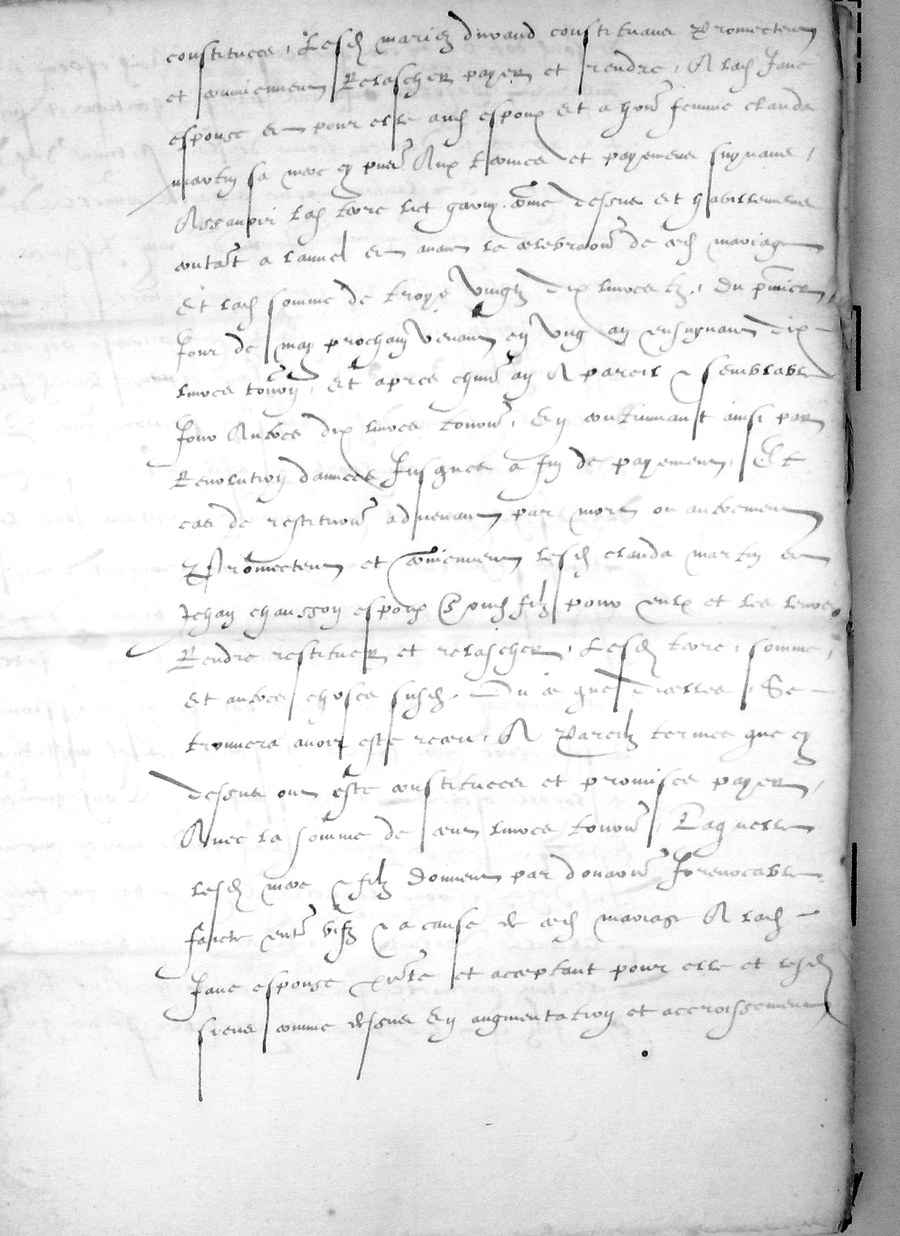 constituees, Lesd mariez durand constituans Promectent
et conviennent Relascher payer et rendre, A lad Jane
espouse et pour elle aud espoux Et a hon femme clauda
martin sa mere cy pnte Aux termes et payemens suyvans,
Assavoir lad terre lict garny come dessus et habillemens
contat a lannel et avant la celebraon de ced mariage
Et lad somme de troys vingtz dix livres tz, du pmier
Jour de may prochain venant en ung an ensuyvant dix
livres tourn, et apres chun an A pareil & semblable
Jour Aultres dix livres tourn, En continuant ainsi par
Revolution dannees Jusques a fin de payement, Et
cas de restituon advenant par mort ou aultrement
Promectent et conviennent lesd clauda martin et
Jehan chausson espoux filz pour eulx et les leurs
Rendre restituer et relascher, Lesd terre, somme,
Et aultres choses susd, Ou ce que dicelles Se
trouvera avoir este receu, A Pareilz termes que cy
dessus ont este constituees et promises payer,
Avec la somme de cent livres tourn, Laquelle
lesd mere & filz donnent par donaon Irrevocable
faicte entre vifz & a cause de ced mariage A lad
Jane espouse pnte et acceptant pour elle et lesd
siens comme dessus En augmentation et accroissement